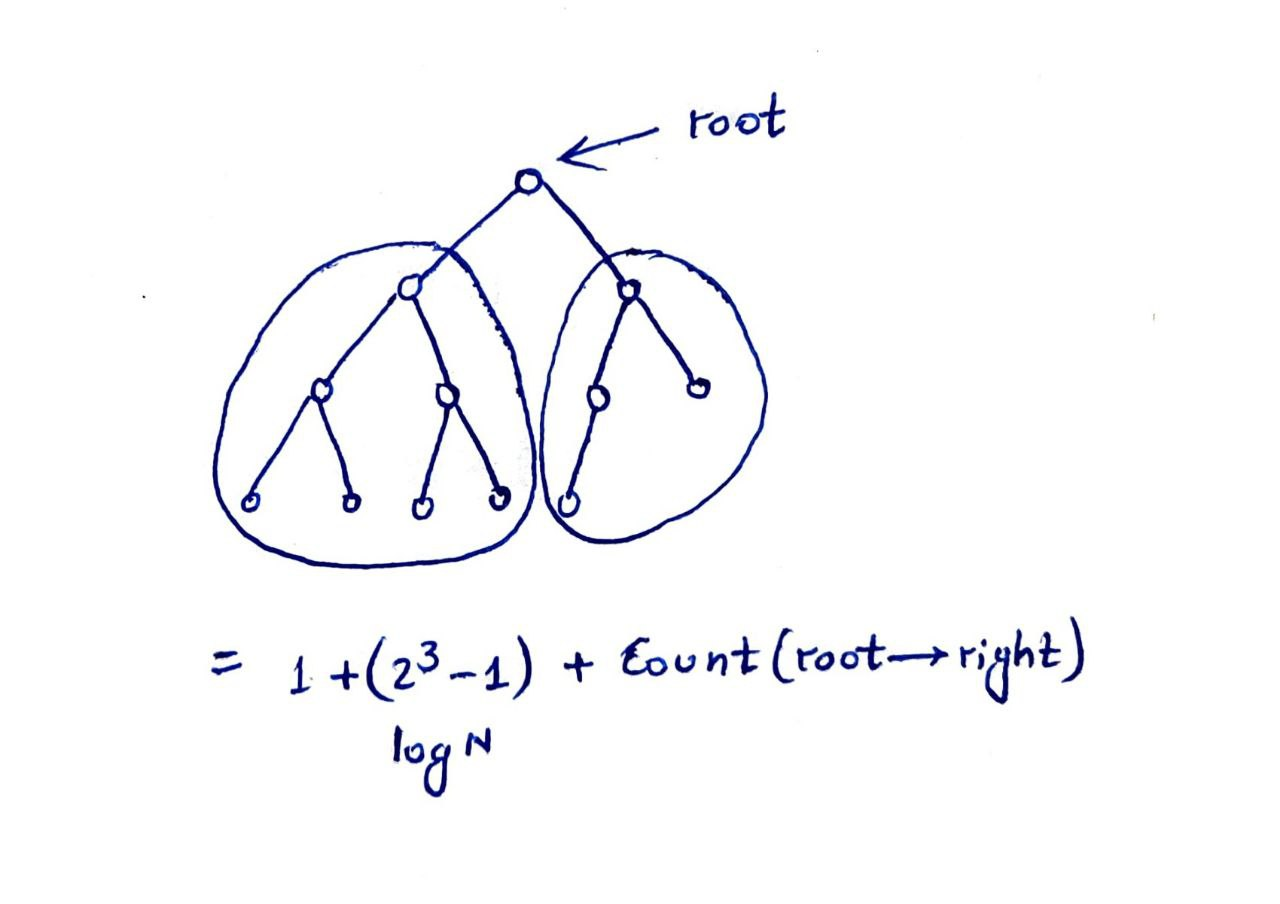 root
= 1 + (2³ - 1) + Count(root→right)
log N